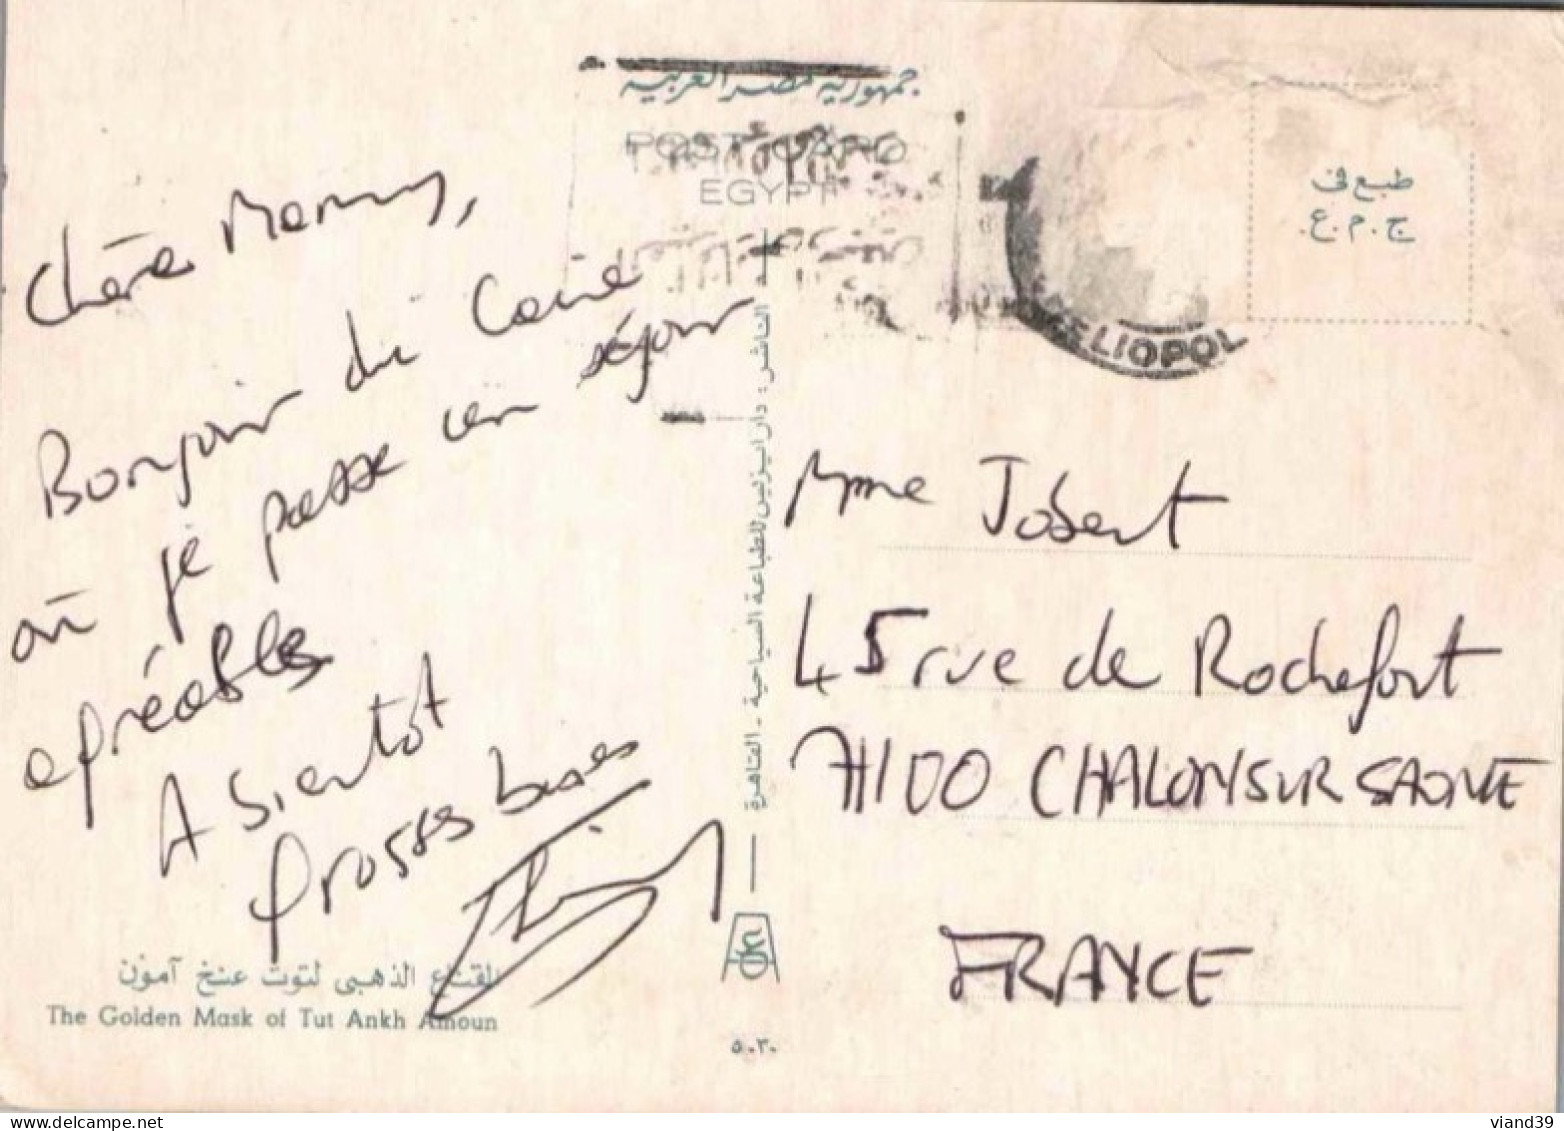 جمهورية مصر العربية
POST CARD
EGYPT
طبع فى
ج.م.ع.
HELIOPOL
Chère Mamy,
Bonjour du Caire
où je passe un séjour
agréable
A bientôt
grosses bises
Mme Jobert
45 rue de Rochefort
71100 CHALON SUR SAONE
FRANCE
الناشر: دار ايزيس للطباعة السياحية - القاهرة
القناع الذهبى لتوت عنخ آمون
The Golden Mask of Tut Ankh Amoun
٥٠٣٠
viand39